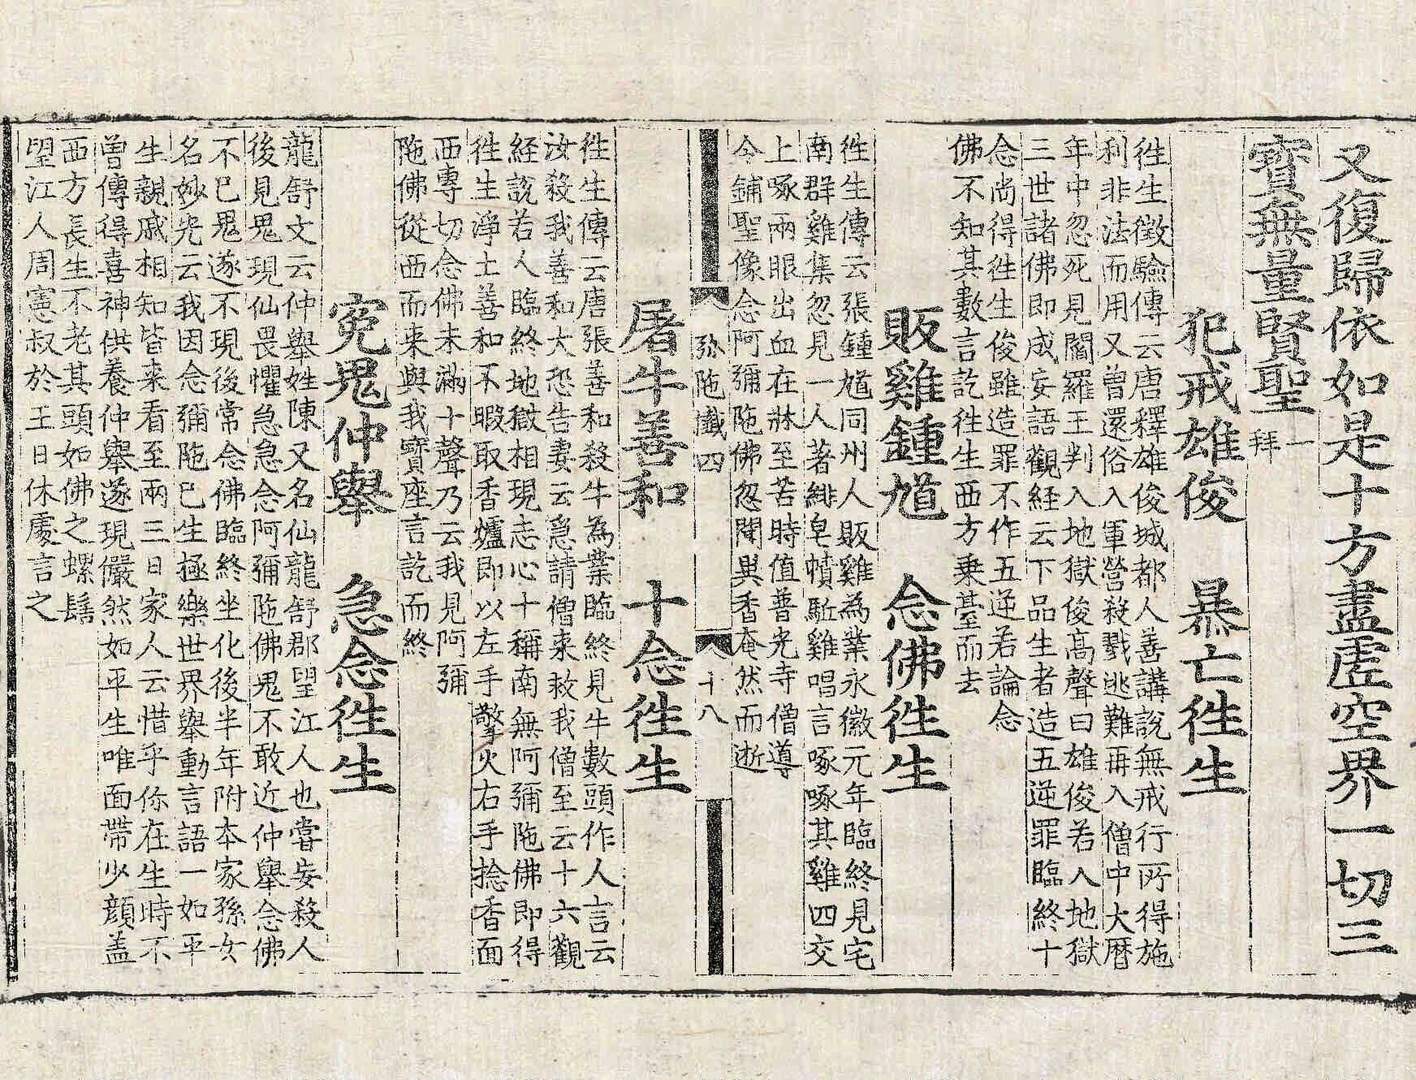 又復歸依如是十方盡虛空界一切三
寶無量賢聖 一拜
犯戒雄俊 暴亡徃生
徃生徵驗傳云唐釋雄俊城都人善講說無戒行所得施
利非法而用又曾還俗入軍營殺戮逃難再入僧中大曆
年中忽死見閻羅王判入地獄俊高聲曰雄俊若入地獄
三世諸佛即成妄語觀経云下品生者造五逆罪臨終十
念尚得徃生俊雖造罪不作五逆若論念
佛不知其數言訖徃生西方乗䑓而去
販雞鍾馗 念佛徃生
徃生傳云張鍾馗同州人販雞為業永徽元年臨終見宅
南群雞集忽見一人著緋皂幘駈雞唱言啄啄其雞四交
上啄兩眼出血在牀至苦時值普光寺僧導
令鋪聖像念阿彌陁佛忽聞異香奄然而逝
弥陁懴四
十八
屠牛善和 十念徃生
徃生傳云唐張善和殺牛為業臨終見牛數頭作人言云
汝殺我善和大恐告妻云急請僧来救我僧至云十六觀
経說若人臨終地獄相現志心十稱南無阿彌陁佛即得
徃生淨土善和不暇取香爐即以左手擎火右手捻香面
西專切念佛未滿十聲乃云我見阿彌
陁佛從西而来與我寳座言訖而終
寃鬼仲舉 急念徃生
龍舒文云仲舉姓陳又名仙龍舒郡望江人也甞妄殺人
後見鬼現仙畏懼急急念阿彌陁佛鬼不敢近仲舉念佛
不巳鬼遂不現後常念佛臨終坐化後半年附本家孫女
名妙光云我因念彌陁巳生極樂世界舉動言語一如平
生親戚相知皆来看至兩三日家人云惜乎你在生時不
曽傳得喜神供養仲舉遂現儼然如平生唯面帶少顔盖
西方長生不老其頭如佛之螺髻
望江人周憲叔於王日休處言之